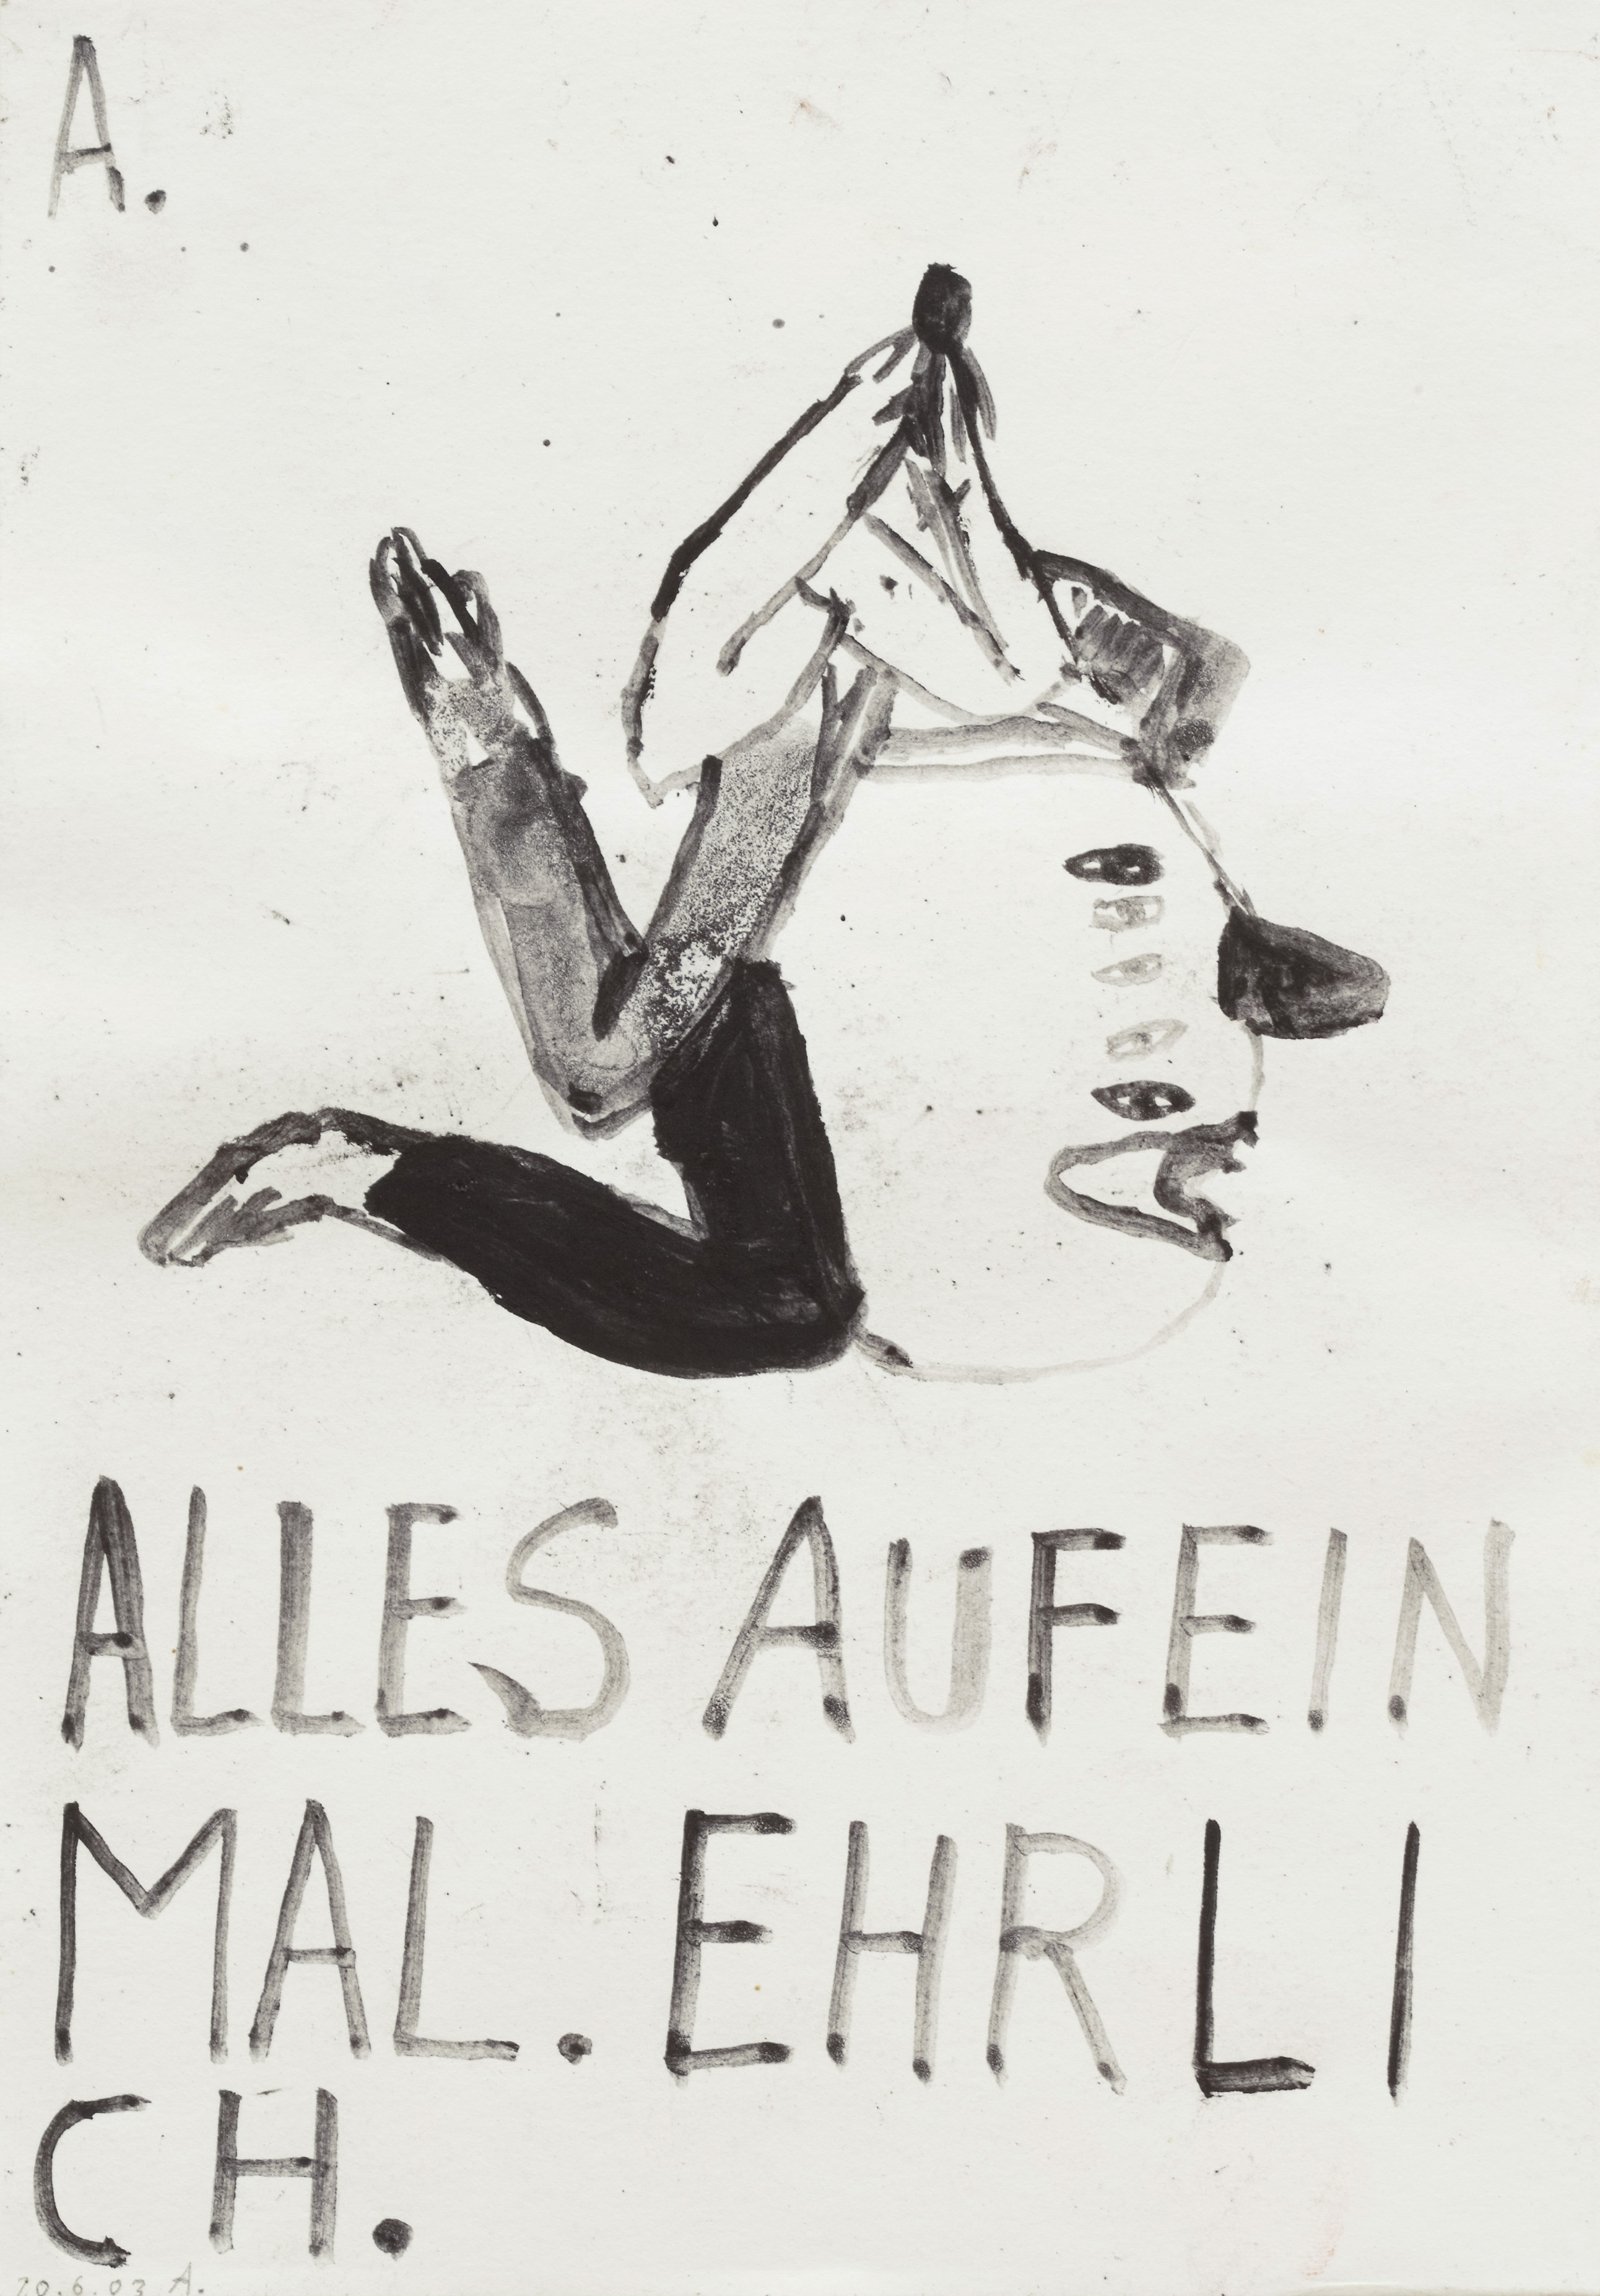 A.
ALLES AUFEIN
MAL. EHRLI
CH.
20.6.03 A.